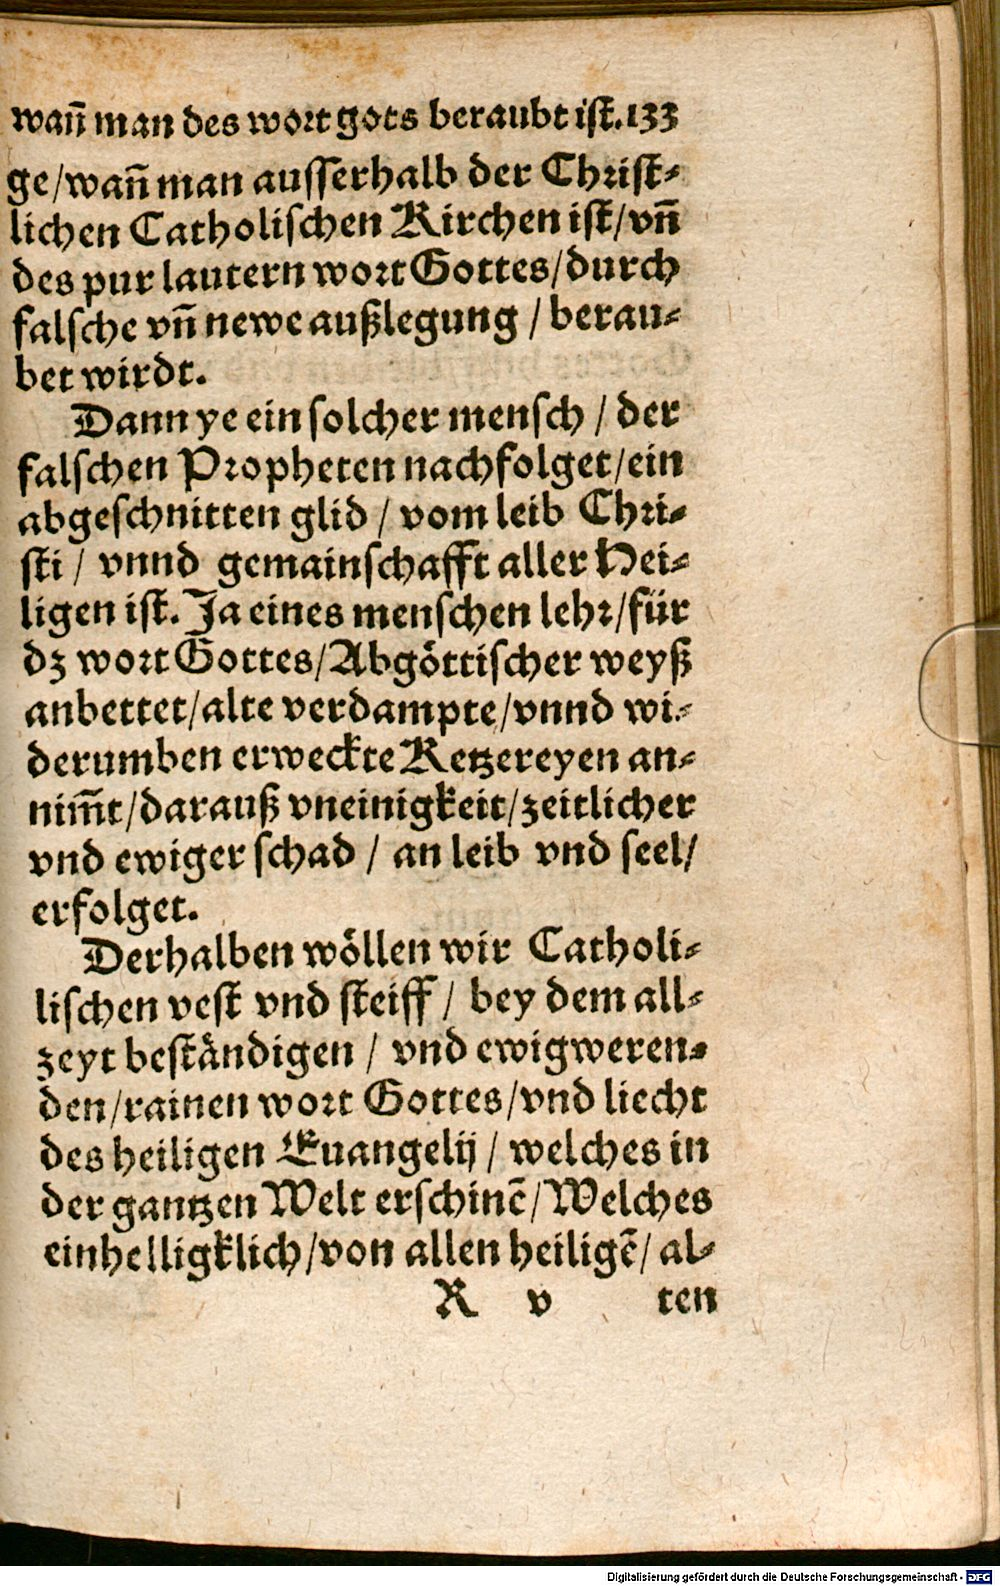 wañ man des wort gots beraubt ist. 133
ge/wañ man ausserhalb der Christ-
lichen Catholischen Kirchen ist/vñ
des pur lautern wort Gottes/durch
falsche vñ newe außlegung / berau-
bet wirdt.
Dann ye ein solcher mensch / der
falschen Propheten nachfolget/ein
abgeschnitten glid / vom leib Chri-
sti / vnnd gemainschafft aller Hei-
ligen ist. Ja eines menschen lehr/für
dz wort Gottes/Abgöttischer weyß
anbettet/alte verdampte/vnnd wi-
derumben erweckte Ketzereyen an-
nim̃t/darauß vneinigkeit/zeitlicher
vnd ewiger schad / an leib vnd seel/
erfolget.
Derhalben wöllen wir Catholi-
lischen vest vnd steiff / bey dem all-
zeyt beständigen / vnd ewigweren-
den/rainen wort Gottes/vnd liecht
des heiligen Euangelij / welches in
der gantzen Welt erschinẽ/Welches
einhelligklich/von allen heiligẽ/ al-
R v ten
Digitalisierung gefördert durch die Deutsche Forschungsgemeinschaft - DFG